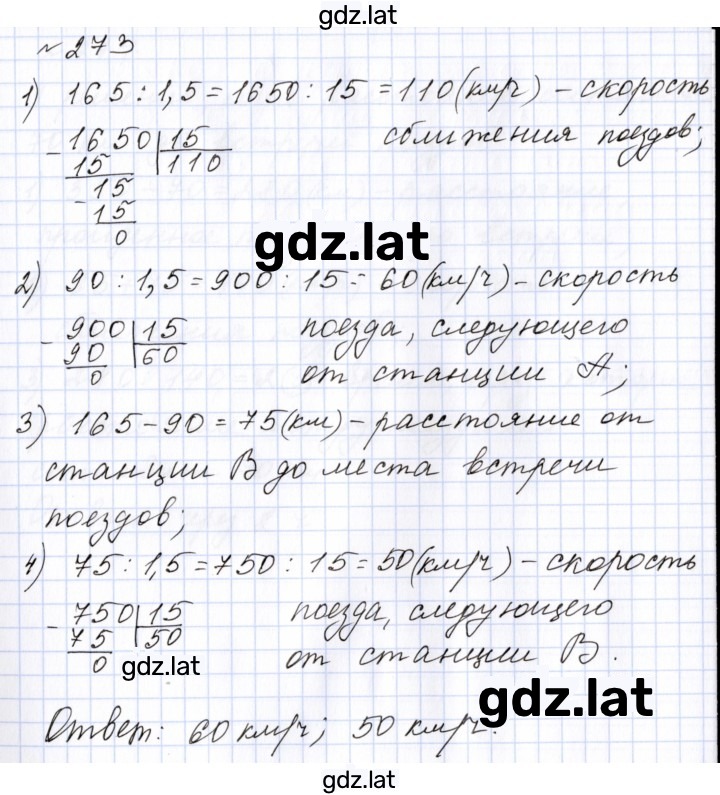 gdz.lat
№ 273
1) 165 : 1,5 = 1650 : 15 = 110 (км/ч) – скорость
сближения поездов;
- 1650 | 15
15 | 110
- 15
15
0
gdz.lat
2) 90 : 1,5 = 900 : 15 = 60 (км/ч) – скорость
поезда, следующего
от станции А;
- 900 | 15
90 | 60
0
3) 165 – 90 = 75 (км) – расстояние от
станции В до места встречи
поездов;
4) 75 : 1,5 = 750 : 15 = 50 (км/ч) – скорость
поезда, следующего
от станции В.
- 750 | 15
75 | 50
0
gdz.lat
gdz.lat
Ответ: 60 км/ч; 50 км/ч.
gdz.lat